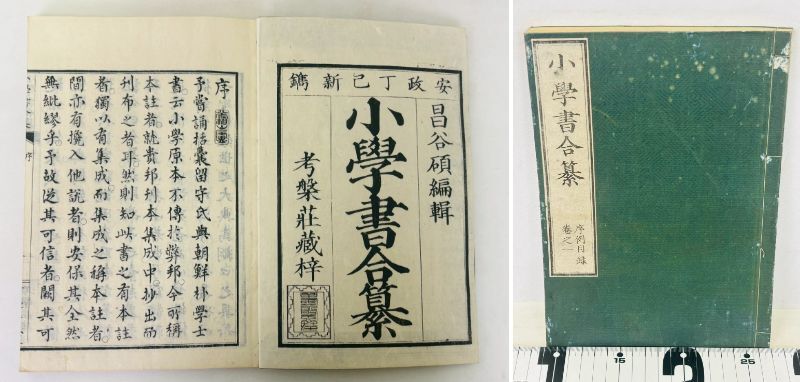 安政丁巳新鐫
昌谷碩編輯
小學書合纂
考槃莊藏梓
序
予嘗誦括囊留守氏與朝鮮朴學士
書云小學原本不傳於弊邦今所稱
本註者就貴邦刊本集成中抄出而
刊布之者耳然則知此書之有本註
者獨以有集成而集成之稱本註者
間亦有攙入他說者則安保其全然
無紕繆乎予故從其可信者闕其可
序
小學書合纂
序例目錄
卷之一
15
25